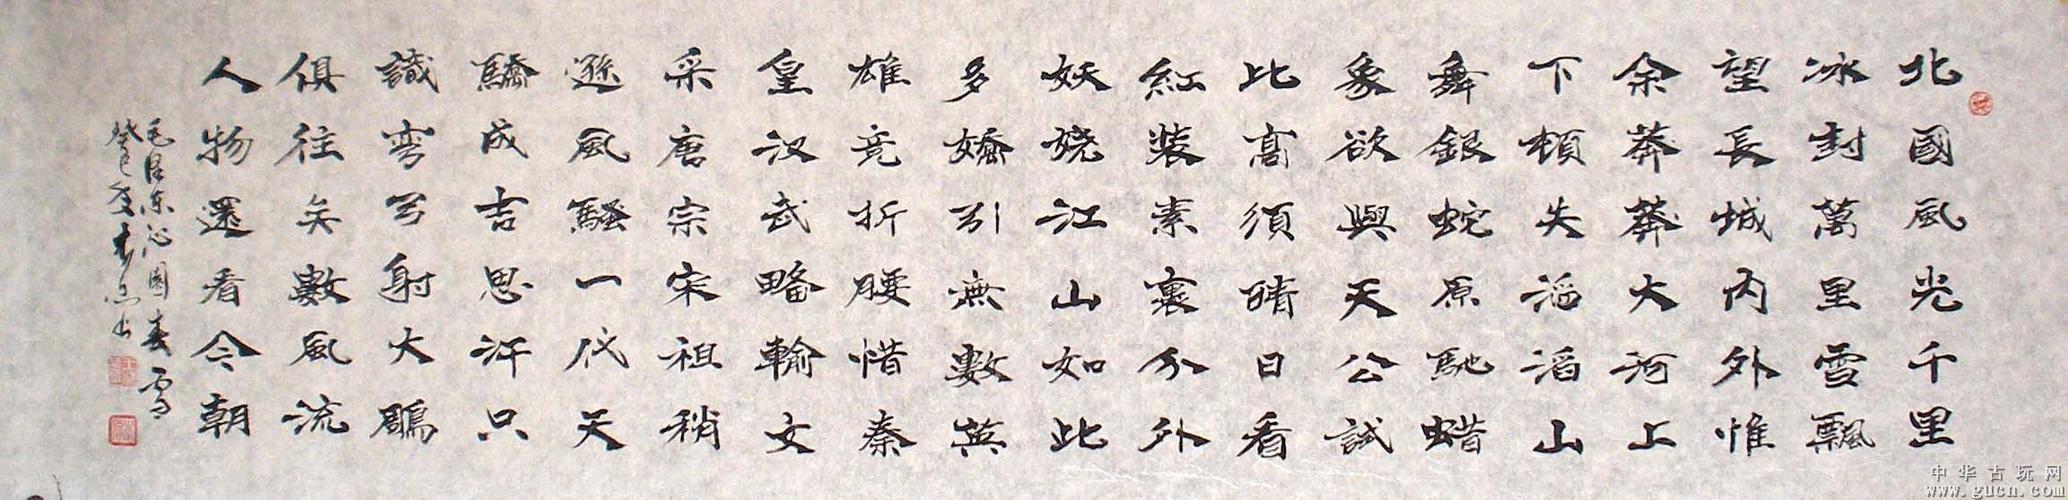 北國風光千里
冰封萬里雪飄
望長城内外惟
余莽莽大河上
下頓失滔滔山
舞銀蛇原馳蜡
象欲與天公試
比髙須晴日看
紅裝素裹分外
妖娆江山如此
多嬌引無數英
雄竞折腰惜秦
皇汉武略輸文
采唐宗宋祖稍
遜風騷一代天
驕成吉思汗只
識彎弓射大鵰
俱往矣數風流
人物還看今朝
毛泽东沁園春雪
癸巳夏书
中华古玩网
www.gucn.com